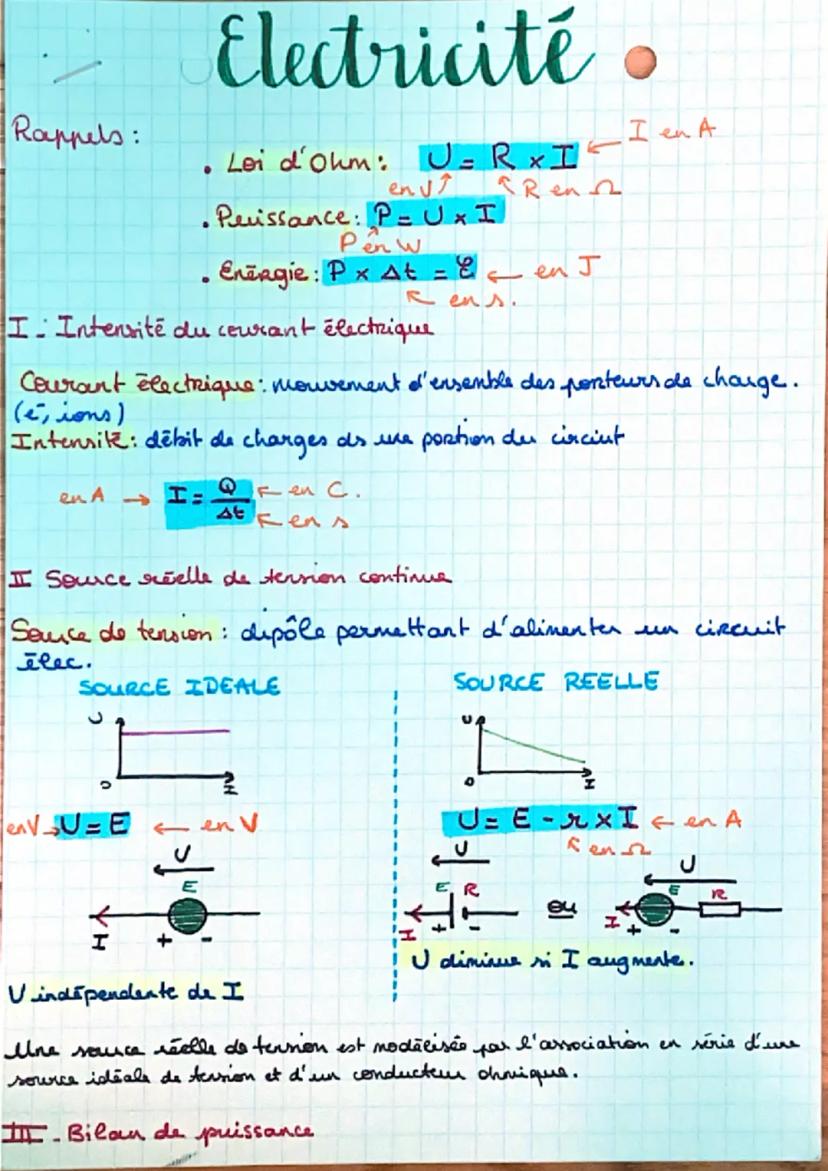 Electricité
Rappels :
I en A
. Loi d'Ohm : U = R x I
en V R en Ω
. Puissance : P = U x I
P en W
. Energie : P x Δt = E en J
en s.
I. Intensité du courant électrique
Courant électrique : mouvement d'ensemble des porteurs de charge.
(e⁻, ions)
Intensité : débit de charges ds une portion du circuit
en A → I = Q/Δt ← en C.
← en s
II Source réelle de tension continue
Source de tension : dipôle permettant d'alimenter un circuit
élec.
SOURCE IDEALE
U
0 I
en V → U = E ← en V
U
E
I + -
U indépendente de I
SOURCE REELLE
U
0 I
U = E - r x I ← en A
en Ω
U
E R
I + -
ou
U
E R
I + -
U diminue si I augmente.
Une source réelle de tension est modélisée par l'association en série d'une
source idéale de tension et d'un conducteur ohmique.
III - Bilan de puissance